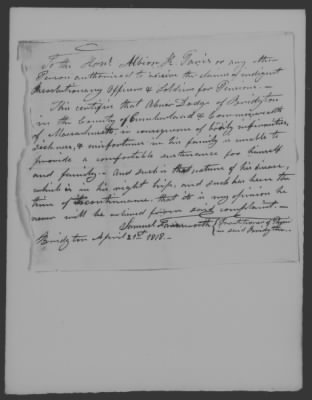 To the Honl. Albion K. Paris or any other
Person authorised to receive the claims of indigent
Revolutionary Officers & Soldiers for Pensions. —
This certifies that Abner Dodge of Bridgton
in the County of Cumberland & Commonwealth
of Massachusetts, in consequence of bodily infirmities,
sickness, & misfortunes in his family is unable to
provide a comfortable sustenance for himself
and family. And such is the nature of his disease,
which is in his right hip, and such has been the
time of its continuance, that it is my opinion he
never will be relieved from said complaint. —
Samuel Farnsworth { Practitioner of Physic
in said Bridgton.
Bridgton April 21st 1818 —